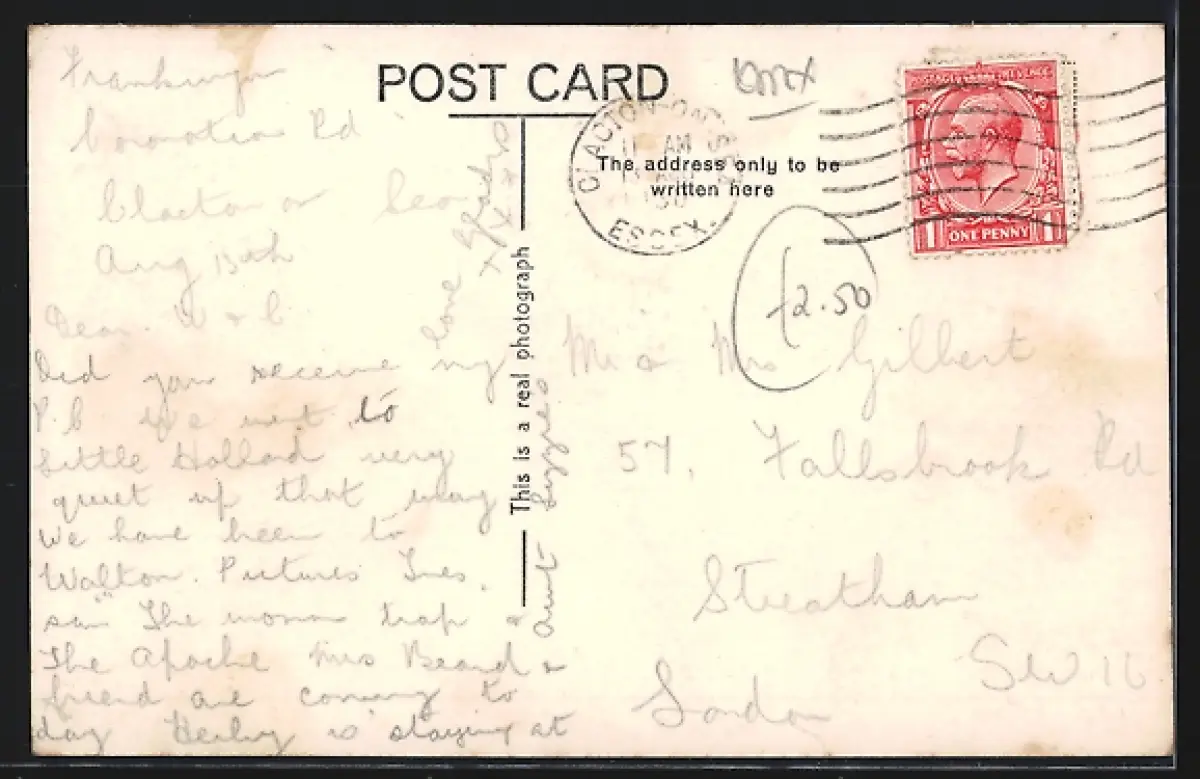 POST CARD
The address only to be
written here
This is a real photograph
CLACTON-ON-SEA
11 AM
ESSEX.
POSTAGE & REVENUE
1 ONE PENNY 1
£2.50
Coronation Rd
Clacton on Sea
Aug 13th
Dear W & C
Did you receive my
P.C We went to
Little Holland very
quiet up that way
We have been to
Walton. Pictures Tues.
saw "The woman trap &
The Apache Mrs Beard &
friend are coming to
day Herby is staying at
love
Aunt Lizzie
Mr & Mrs Gilbert
57, Fallsbrook Rd
Streatham
SW 16
London